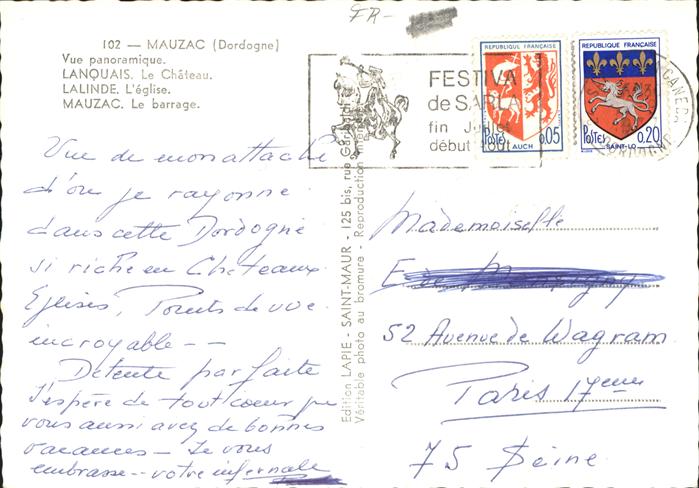 FR-
102 — MAUZAC (Dordogne)
Vue panoramique.
LANQUAIS. Le Château.
LALINDE. L'église.
MAUZAC. Le barrage.
FESTIVA
de SARLA
fin Juillet
début Août
REPUBLIQUE FRANÇAISE
Postes 0,05
AUCH
REPUBLIQUE FRANÇAISE
Postes 0,20
SAINT-LO
DORDOGNE
Vue de mon attache
d'où je rayonne
dans cette Dordogne
si riche en Chateaux
Eglises, Points de vue
incroyable--
Détente parfaite
J'espère de tout coeur que
vous aussi avez de bonnes
vacances - Je vous
embrasse-- votre infernale
Edition LAPIE - SAINT-MAUR - 125 bis, rue
Véritable photo au bromure - Reproduction
Mademoiselle
52 Avenue de Wagram
Paris 17eme
75 Seine